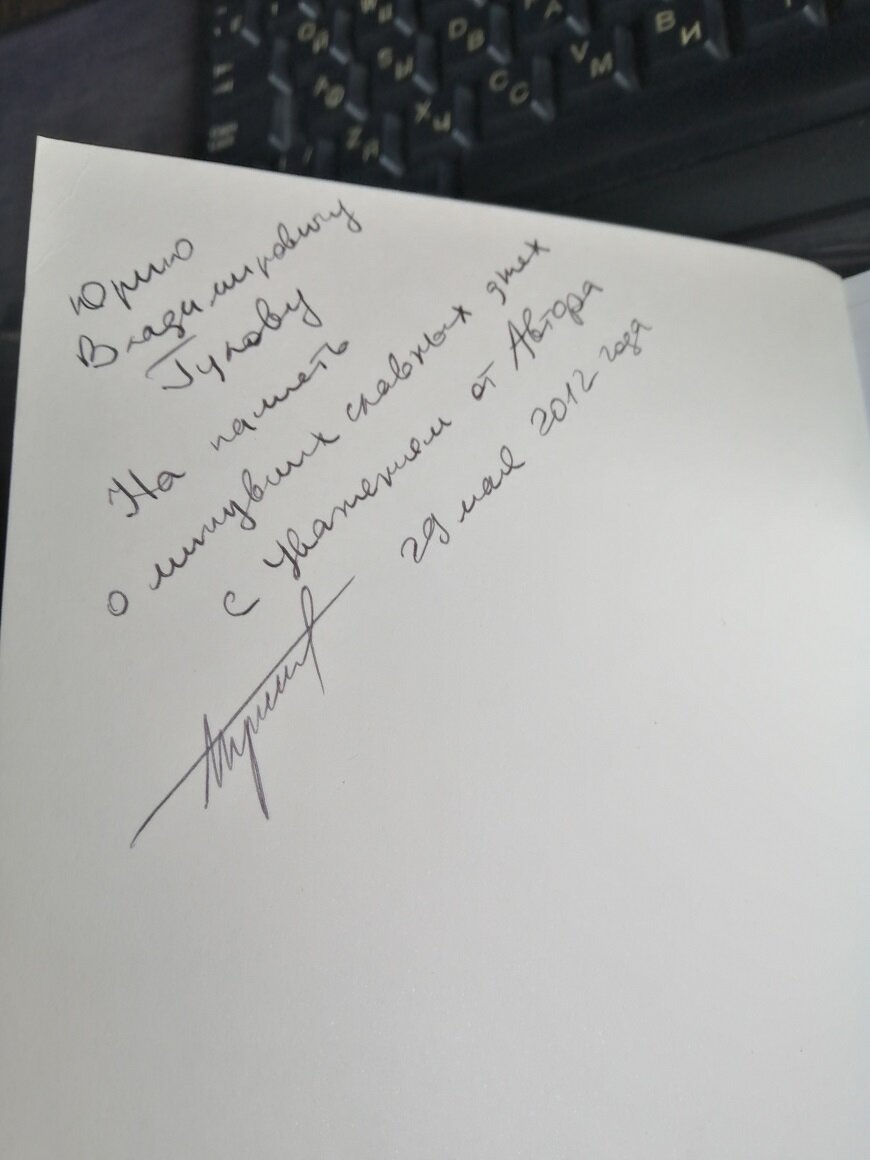 Юрию
Владимировичу
Гулову
На память
о минувших славных днях
с Уважением от Автора
29 мая 2012 года